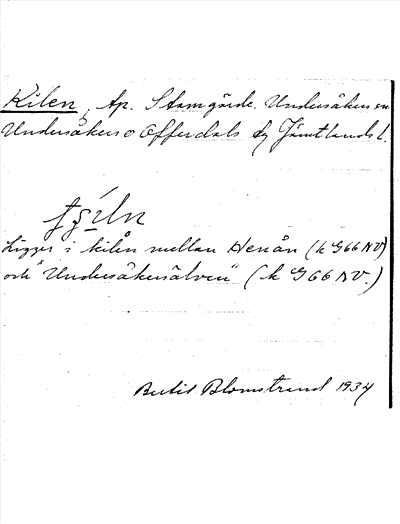 Kilen, tp. Stamgärde. Undersåkers sn
Undersåkers o Offerdals tg Jämtlands l.
Ligger i kilen mellan Henån (k 966 NV)
och "Undersåkersälven" (k 966 NV.)
Bertil Blomstrand 1934